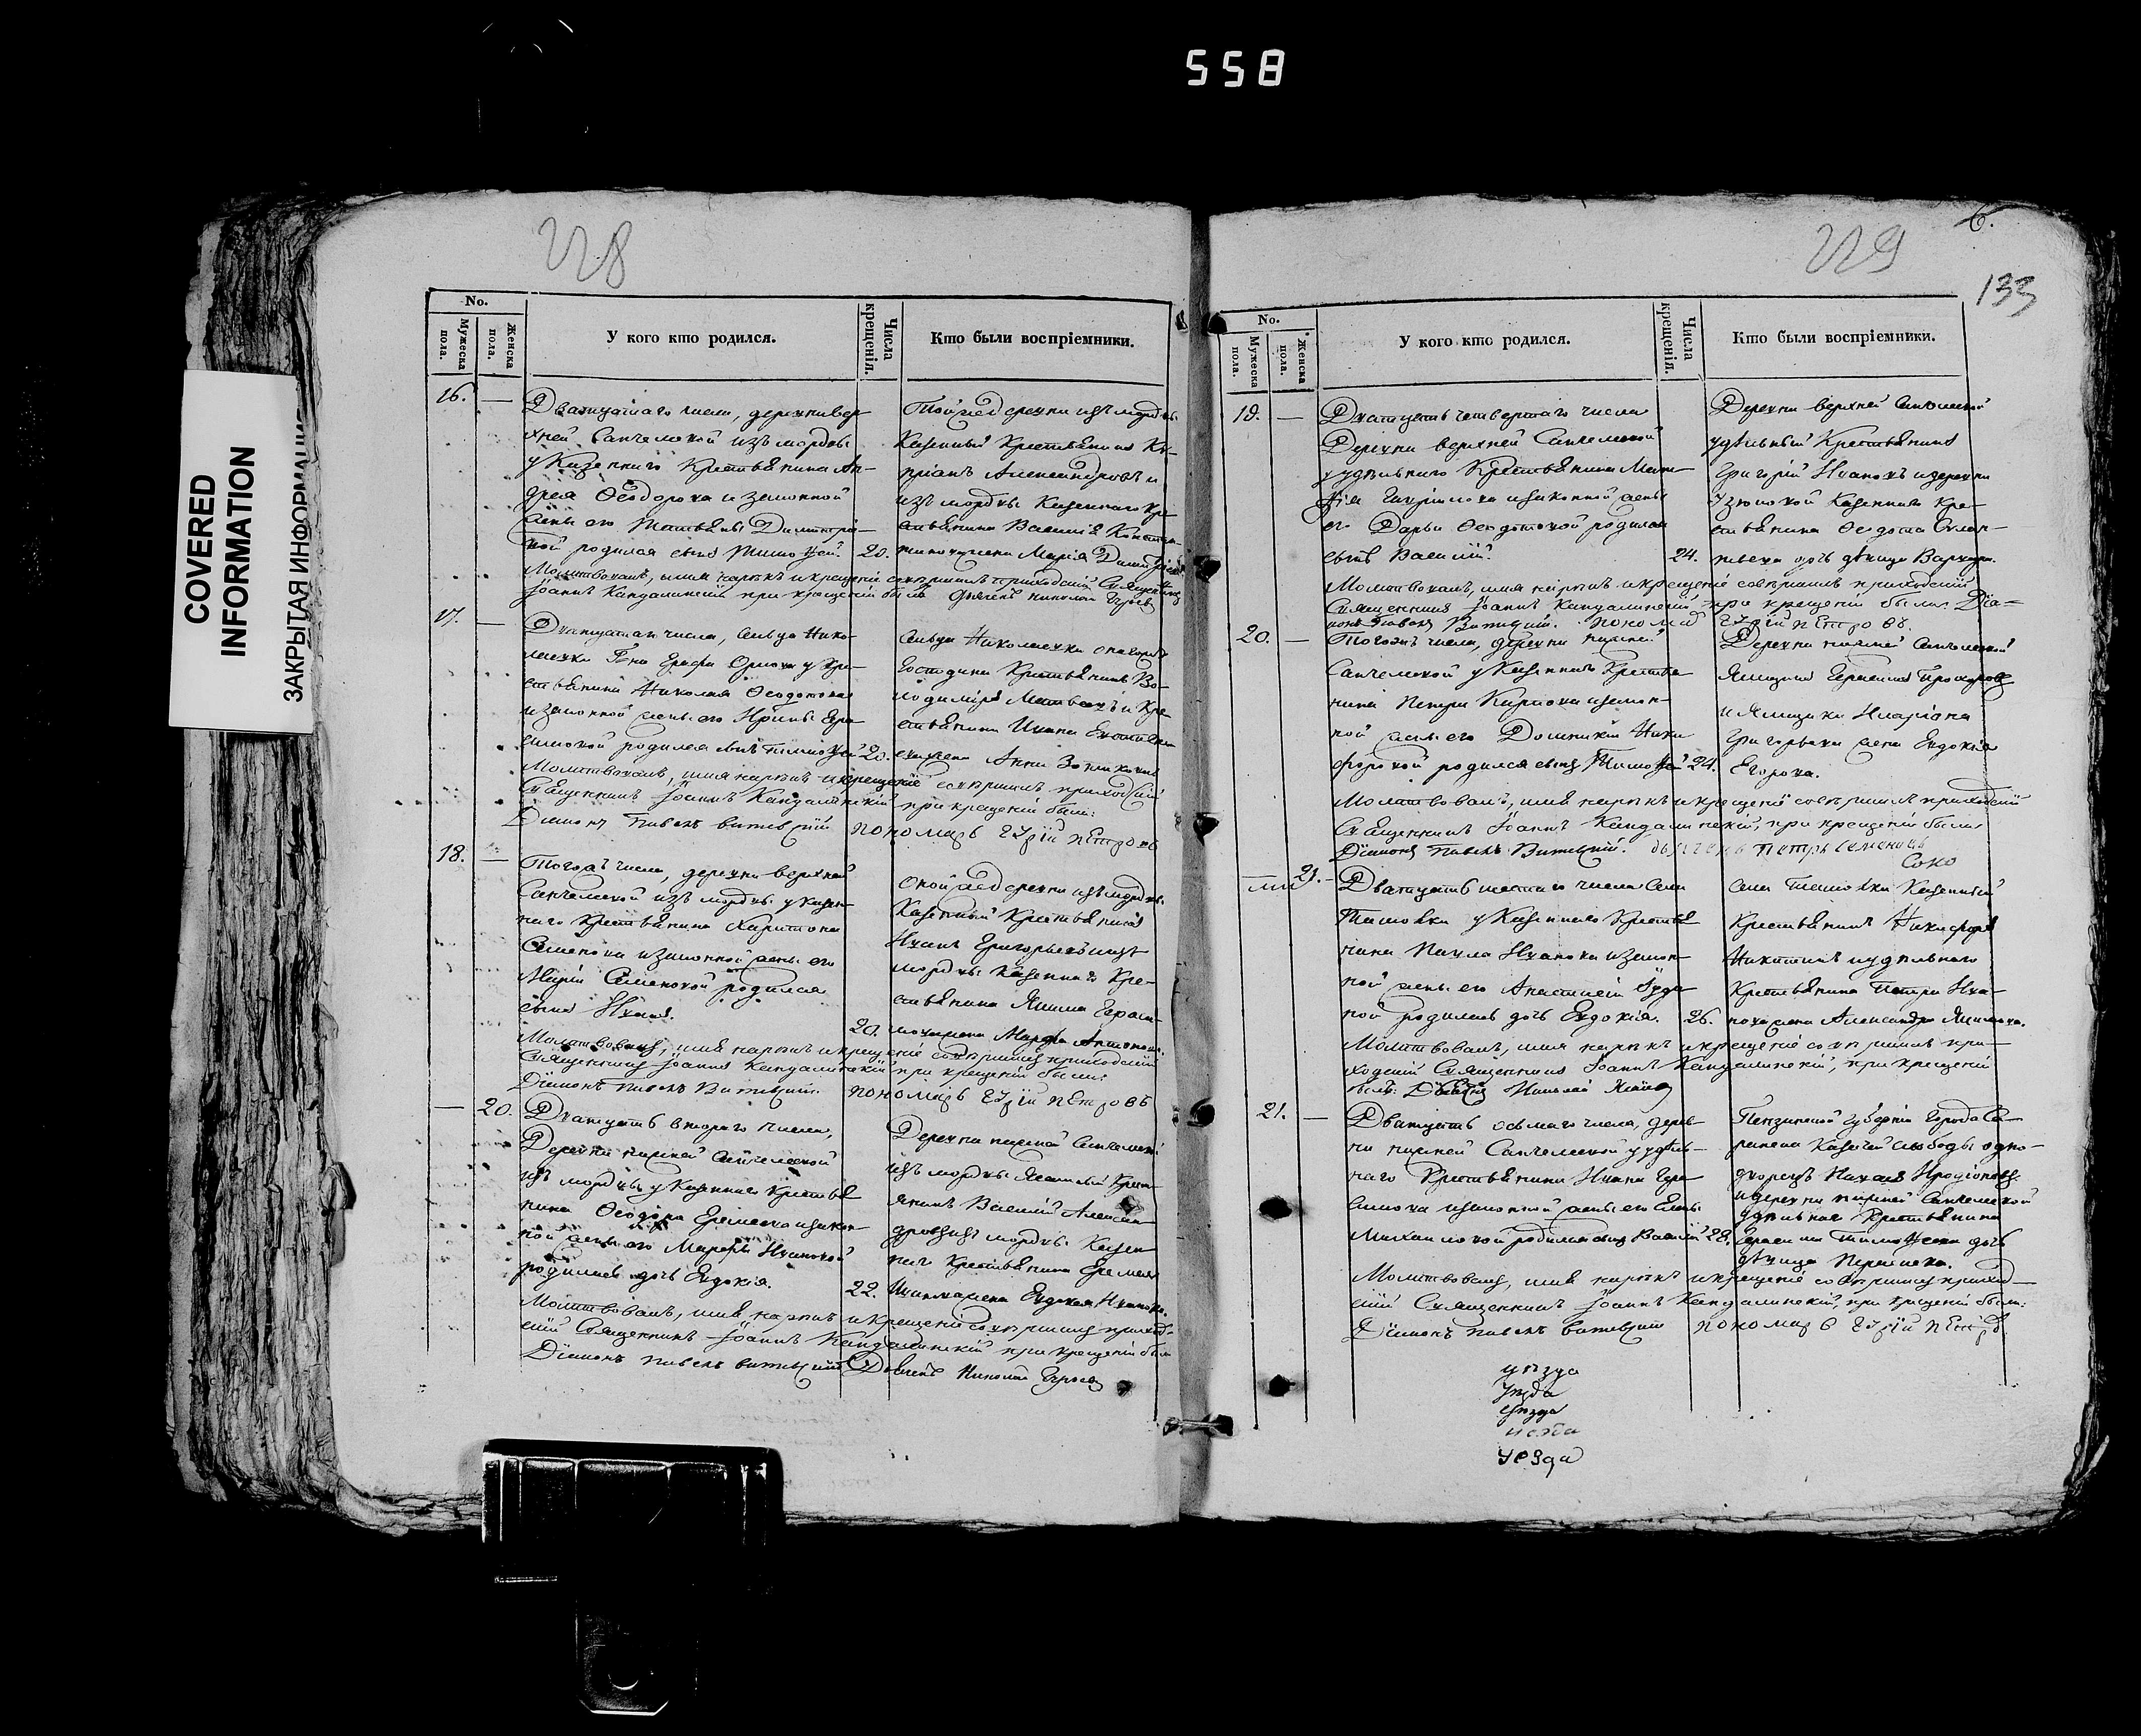 558
COVERED
INFORMATION
ЗАКРЫТАЯ ИНФОРМАЦИЯ
228
No.
Мужеска пола.
Женска пола.
У кого кто родился.
Числа крещенія.
Кто были воспріемники.
16.
Дватцатаго числа, деревни вер-
хней Санчелеской изъ мордвы
у Казеннаго Крестьянина Ан-
дрея Ѳеодорова и законной
жены его Татьяны Димитріе-
вой родился сынъ Тимоѳей. 20.
Той же деревни изъ мордвы
Казенный Крестьянинъ Ки-
пріанъ Александровъ и
изъ мордвы Казеннаго Кре-
стьянина Василія Констан-
тинова жена Марія Димитріева
Молитвовалъ, имя нарѣкъ и крещеніе совершилъ приходскій Священникъ
Іоаннъ Кандалинскій при крещеніи былъ Дьячекъ Николай
17.
Дватцатаго числа, Сельца Нико-
лаевки Г-на Графа Орлова у Кре-
стьянина Николая Ѳеодотова
и законной жены его Ирины Гера-
симовой родился сынъ Тимоѳей 20.
Сельца Николаевки онагожъ
Господина Крестьянинъ Во-
лодимiръ Матвеевъ и Кре-
стьянина Ивана
жена Анна
Молитвовалъ, имя нарѣкъ и крещеніе совершилъ приходскій
Священникъ Іоаннъ Кандалинскій при крещеніи были:
Діаконъ Павелъ Витевскій пономарь Гурій Петровъ
18.
Тогожъ числа, деревни верхней
Санчелеской изъ мордвы у Казен-
наго Крестьянина Харитона
Семенова и законной жены его
Маріи Семеновой родился
сынъ Иванъ. 20.
Оной же деревни изъ мордвы
Казенный Крестьянинъ
Иванъ Григорьевъ и изъ
мордвы Казеннаго Кре-
стьянина Якима Гераси-
мова жена Марфа Антонова.
Молитвовалъ, имя нарѣкъ и крещеніе совершилъ приходскій
Священникъ Іоаннъ Кандалинскій при крещеніи были:
Діаконъ Павелъ Витевскій. пономарь Гурій Петровъ
20.
Дватцать втораго числа,
Деревни нижней Санчелеской
изъ мордвы у Казеннаго Крестья-
нина Ѳеодора Еремеева и закон-
ной жены его Марфы Ивановой
родилась дочь Евдокія. 22.
Деревни нижней Санчелеской
изъ мордвы Крестья-
янинъ Василій Алексан-
дровъ и изъ мордвы Казен-
наго Крестьянина Еремея
жена Евдокія Иванова.
Молитвовалъ, имя нарѣкъ и крещеніе совершилъ приход-
скій Священникъ Іоаннъ Кандалинскій при крещеніи были
Діаконъ Павелъ Витевскій Дьячекъ Николай
6.
229
133
No.
Мужеска пола.
Женска пола.
У кого кто родился.
Числа крещенія.
Кто были воспріемники.
19.
Дватцать четвертаго числа
Деревни верхней Санчелеской
у удѣльнаго Крестьянина Мат-
фѣя Гаврилова и законной жены
его Дарьи Ѳеодотовой родился
сынъ Василій. 24.
Деревни верхней Санчелеской
удѣльный Крестьянинъ
Григорій Ивановъ и деревни
Узюковой Казеннаго Кре-
стьянина Ѳеодота
дочь дѣвица Варвара.
Молитвовалъ, имя нарѣкъ и крещеніе совершилъ приходскій
Священникъ Іоаннъ Кандалинскій, при крещеніи были: Діа-
конъ Павелъ Витевскій. пономарь Гурій Петровъ.
20.
Тогожъ числа, деревни нижней
Санчелеской у Казеннаго Крестья-
нина Петра Карпова и закон-
ной жены его Домникіи Ники-
форовой родился сынъ Тимоѳей 24.
Деревни нижней Санчелеской
Ямщикъ Герасимъ Прохоровъ
и Ямщика Иларіона
Григорьева жена Евдокія
Егорова.
Молитвовалъ, имя нарѣкъ и крещеніе совершилъ приходскій
Священникъ Іоаннъ Кандалинскій, при крещеніи были
Діаконъ Павелъ Витевскій. дьячекъ Петръ Семеновъ
Соко
21.
Дватцать шестаго числа Села
Ташолки у Казеннаго Крестья-
нина Павла Иванова и закон-
ной жены его Анастасіи
родилась дочь Евдокія. 26.
Села Ташолки Казенный
Крестьянинъ Никифоръ
Никитинъ и удѣльнаго
Крестьянина Петра Ива-
нова жена Александра Якимова.
Молитвовалъ, имя нарѣкъ и крещеніе совершилъ при-
ходскій Священникъ Іоаннъ Кандалинскій, при крещеніи
былъ: Дьячекъ Николай
21.
Дватцать осьмаго числа, дерев-
ни нижней Санчелеской у удѣль-
наго Крестьянина Ивана Гера-
симова и законной жены его Елены
Михайловой родился сынъ Василій 28.
Пензинской Губерніи Города Са-
ранска Казачей слободы одно-
дворецъ Иродіоновъ
и деревни нижней Санчелеской
Удѣльнаго Крестьянина
Герасима Тимоѳеева дочь
дѣвица
Молитвовалъ, имя нарѣкъ и крещеніе совершилъ приход-
скій Священникъ Іоаннъ Кандалинскій, при крещеніи были:
Діаконъ Павелъ Витевскій пономарь Гурій Петровъ
уѣзда
уѣзда
уѣзда
уѣзда
уѣзда